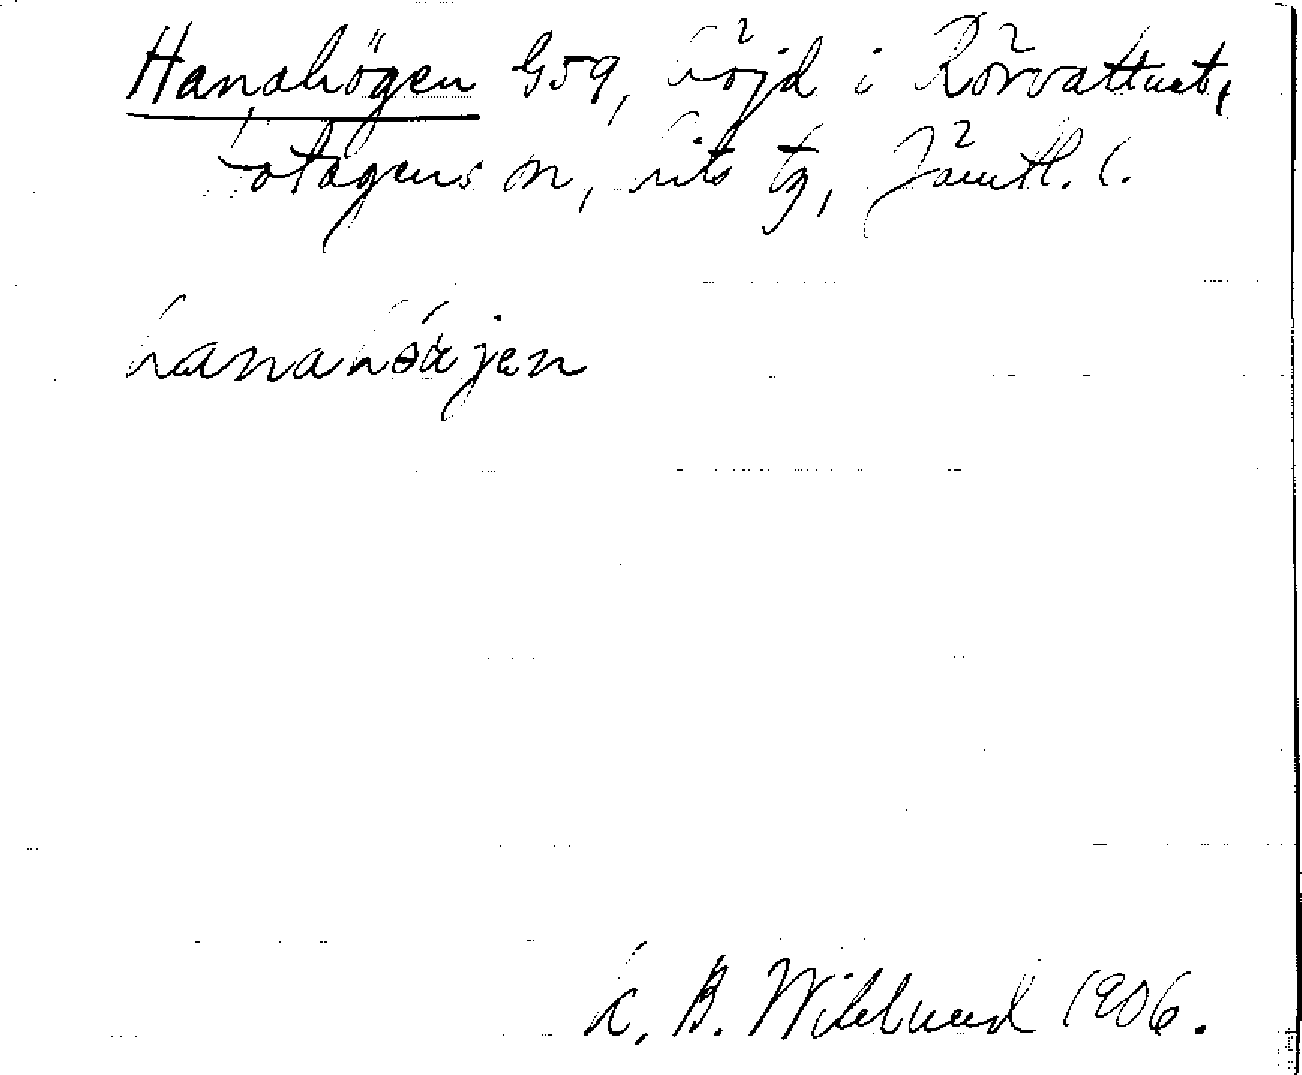 Hanahögen G59, höjd i Rörvattnet,
Hotagens sn, Lits tg, Jämtl. l.
hanahöᶍjen
K. B. Wiklund 1906.